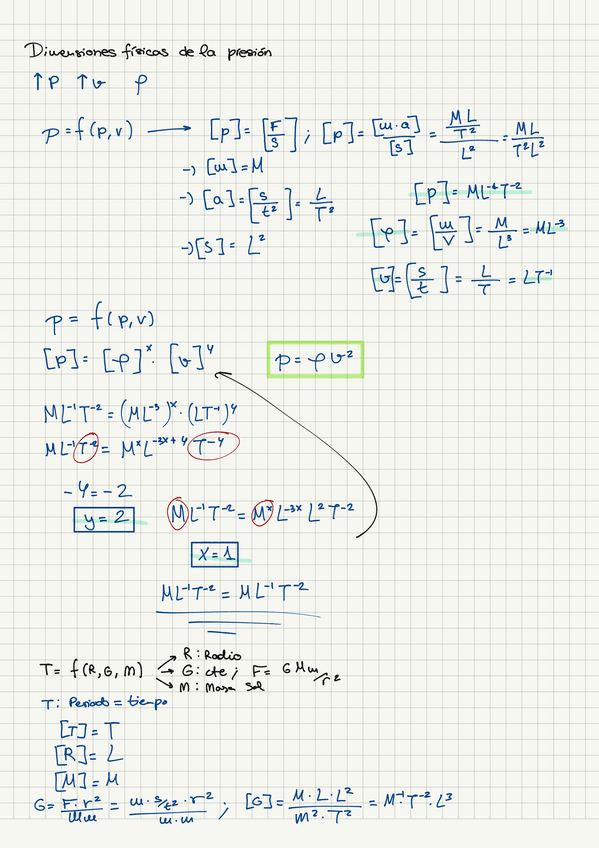 Dimensiones físicas de la presión
↑P ↑v ρ
p = f(ρ,v) → [p] = [F/S] ; [p] = [m·a]/[s] = (ML/T²)/L² = ML/T²L²
-) [m] = M
-) [a] = [s/t²] = L/T²
[p] = ML⁻¹T⁻²
-) [S] = L²
[ρ] = [m/V] = M/L³ = ML⁻³
[v] = [s/t] = L/T = LT⁻¹
p = f(ρ,v)
[p] = [ρ]ˣ · [v]ʸ
p = ρv²
ML⁻¹T⁻² = (ML⁻³)ˣ · (LT⁻¹)ʸ
ML⁻¹T⁻² = MˣL⁻³ˣ⁺ʸ T⁻ʸ
-y = -2
y = 2
ML⁻¹T⁻² = MˣL⁻³ˣL²T⁻²
x = 1
ML⁻¹T⁻² = ML⁻¹T⁻²
T = f(R,G,m)
R: Radio
G: cte; F = GMm/r²
M: Masa sol
T: Periodo = tiempo
[T] = T
[R] = L
[M] = M
G = F·r²/Mm = m·s/t²·r²/m·m ; [G] = M·L·L²/m²·T² = M⁻¹·T⁻²·L³